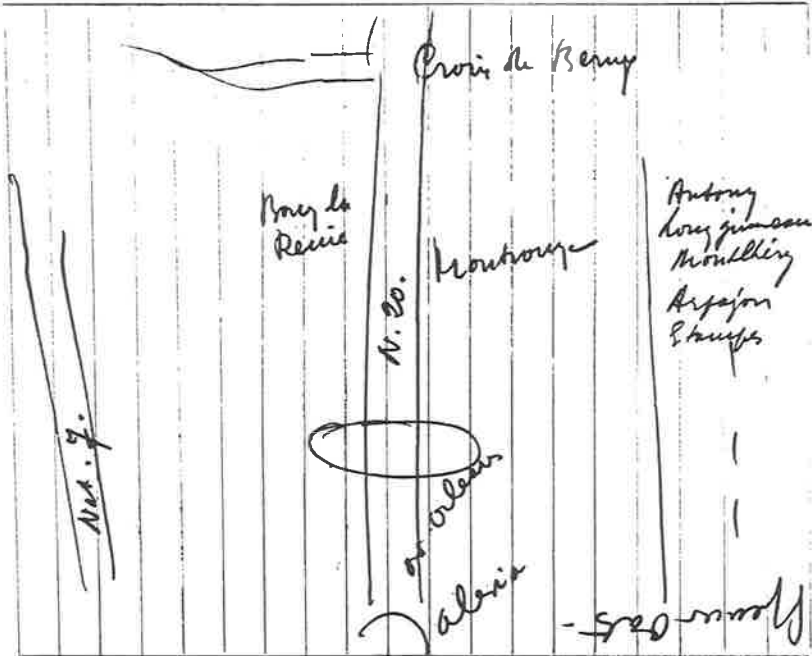 Croix de Berny
Bourg la
Reine
Montrouge
N. 20.
Nat. 7.
Antony
Longjumeau
Montlhéry
Arpajon
Etampes
Orléans
Alesia